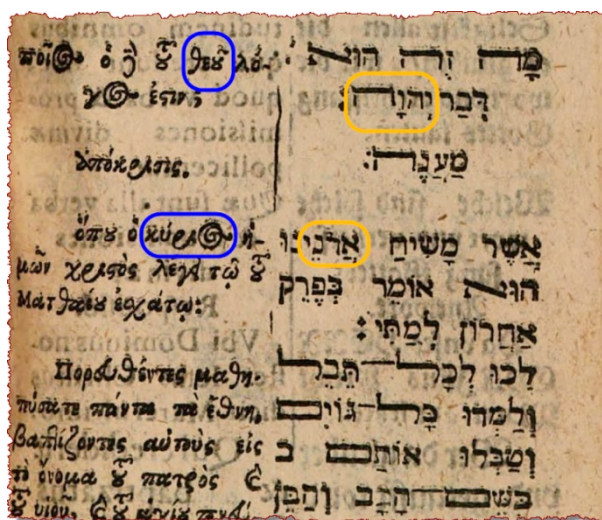 ποῖος ὁ τοῦ θεοῦ λό-
γος ἐστίν;
ἀπόκρισις.
ὅπου ὁ κύριος ἡ-
μῶν χριστὸς λέγει τῷ τοῦ
Ματθαίου ἐσχάτῳ:
Πορευθέντες μαθη-
τεύσατε πάντα τὰ ἔθνη,
βαπτίζοντες αὐτοὺς εἰς
τὸ ὄνομα τοῦ πατρὸς καὶ
τοῦ υἱοῦ, καὶ τοῦ ἁγίου πνεύ-
מָה זֶה הוּא
דְּבַר יְהוָה:
מַעֲנֶה:
אֲשֶׁר מָשִׁיחַ אֲדֹנֵינוּ
הוּא אוֹמֵר בְּפֶרֶק
אַחֲרוֹן לְמַתַּי:
לְכוּ לְכָל־תֵּבֵל
וְלַמְּדוּ כָּל־גּוֹיִם
וְטִבְלוּ אוֹתָם ב
בְּשֵׁם הָאָב וְהַבֵּן